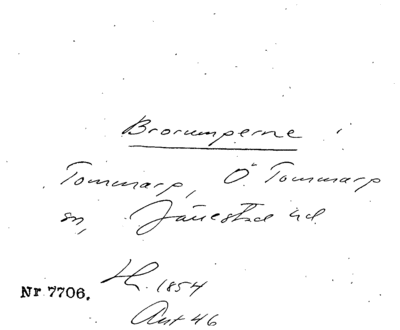 Brorumperne i
Tommarp, Ö. Tommarp
sn, Järrestad hd.
Lh. 1854
Nr 7706.
Ant 46